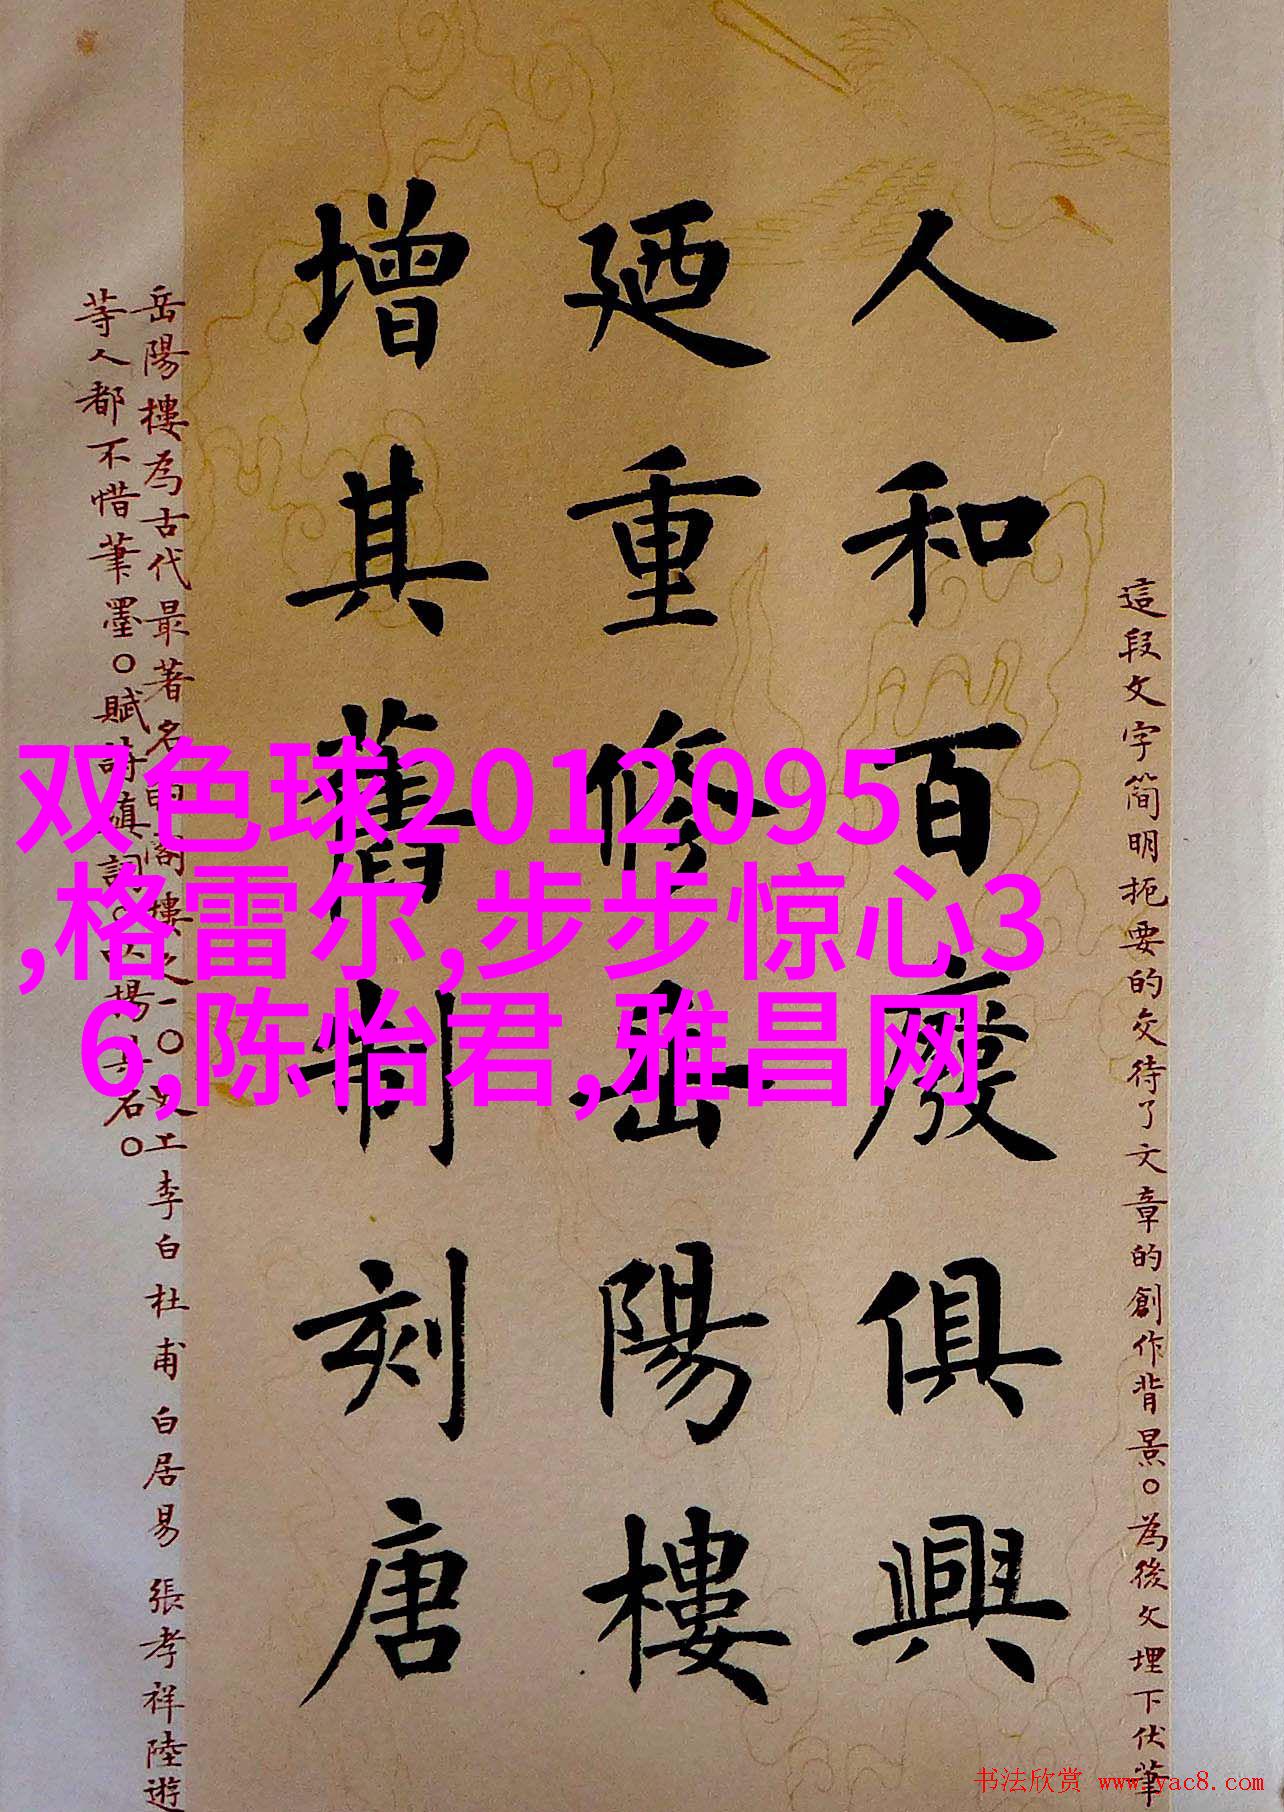 這段文字简明扼要的交待了文章的創作背景。為後文埋下伏筆
人和百廢俱興
廼重修岳陽樓
增其舊制刻唐
岳陽樓為古代最著名阁樓之一。史上李白杜甫白居易張孝祥陸遊
等人都不惜筆墨。賦詩填詞。以揚其名。
双色球2012095
,格雷尔,步步惊心3
6,陈怡君,雅昌网
书法欣赏 www.yac8.com